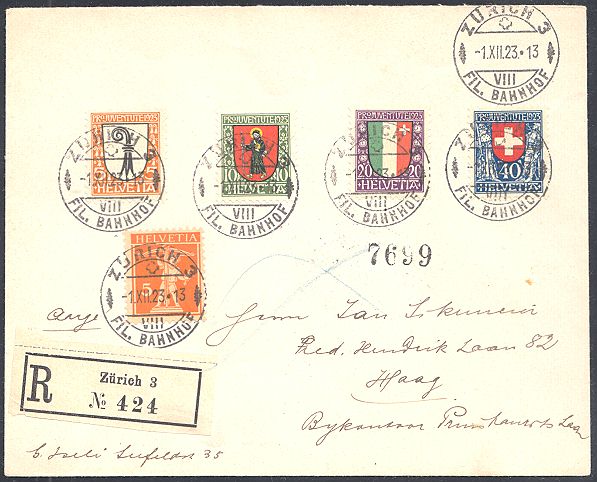 ZÜRICH 3
-1.XII.23.-13
VIII
FIL. BAHNHOF
PRO JUVENTUTE 1923
5
HELVETIA
ZÜRICH 3
VIII
FIL. BAHNHOF
PRO JUVENTUTE 1923
10 10
HELVETIA
ZÜRICH 3
VIII
FIL. BAHNHOF
PRO JUVENTUTE 1923
20 20
HELVETIA
ZÜRICH 3
VIII
FIL. BAHNHOF
PRO JUVENTUTE 1923
40
HELVETIA
ZÜRICH 3
VIII
FIL. BAHNHOF
7699
HELVETIA
5
ZÜRICH 3
-1.XII.23.-13
VIII
FIL. BAHNHOF
Herrn Jan
Hendrik Laan 82
Haag
Bykantoor
R
Zürich 3
№ 424
Seefeldstr 35